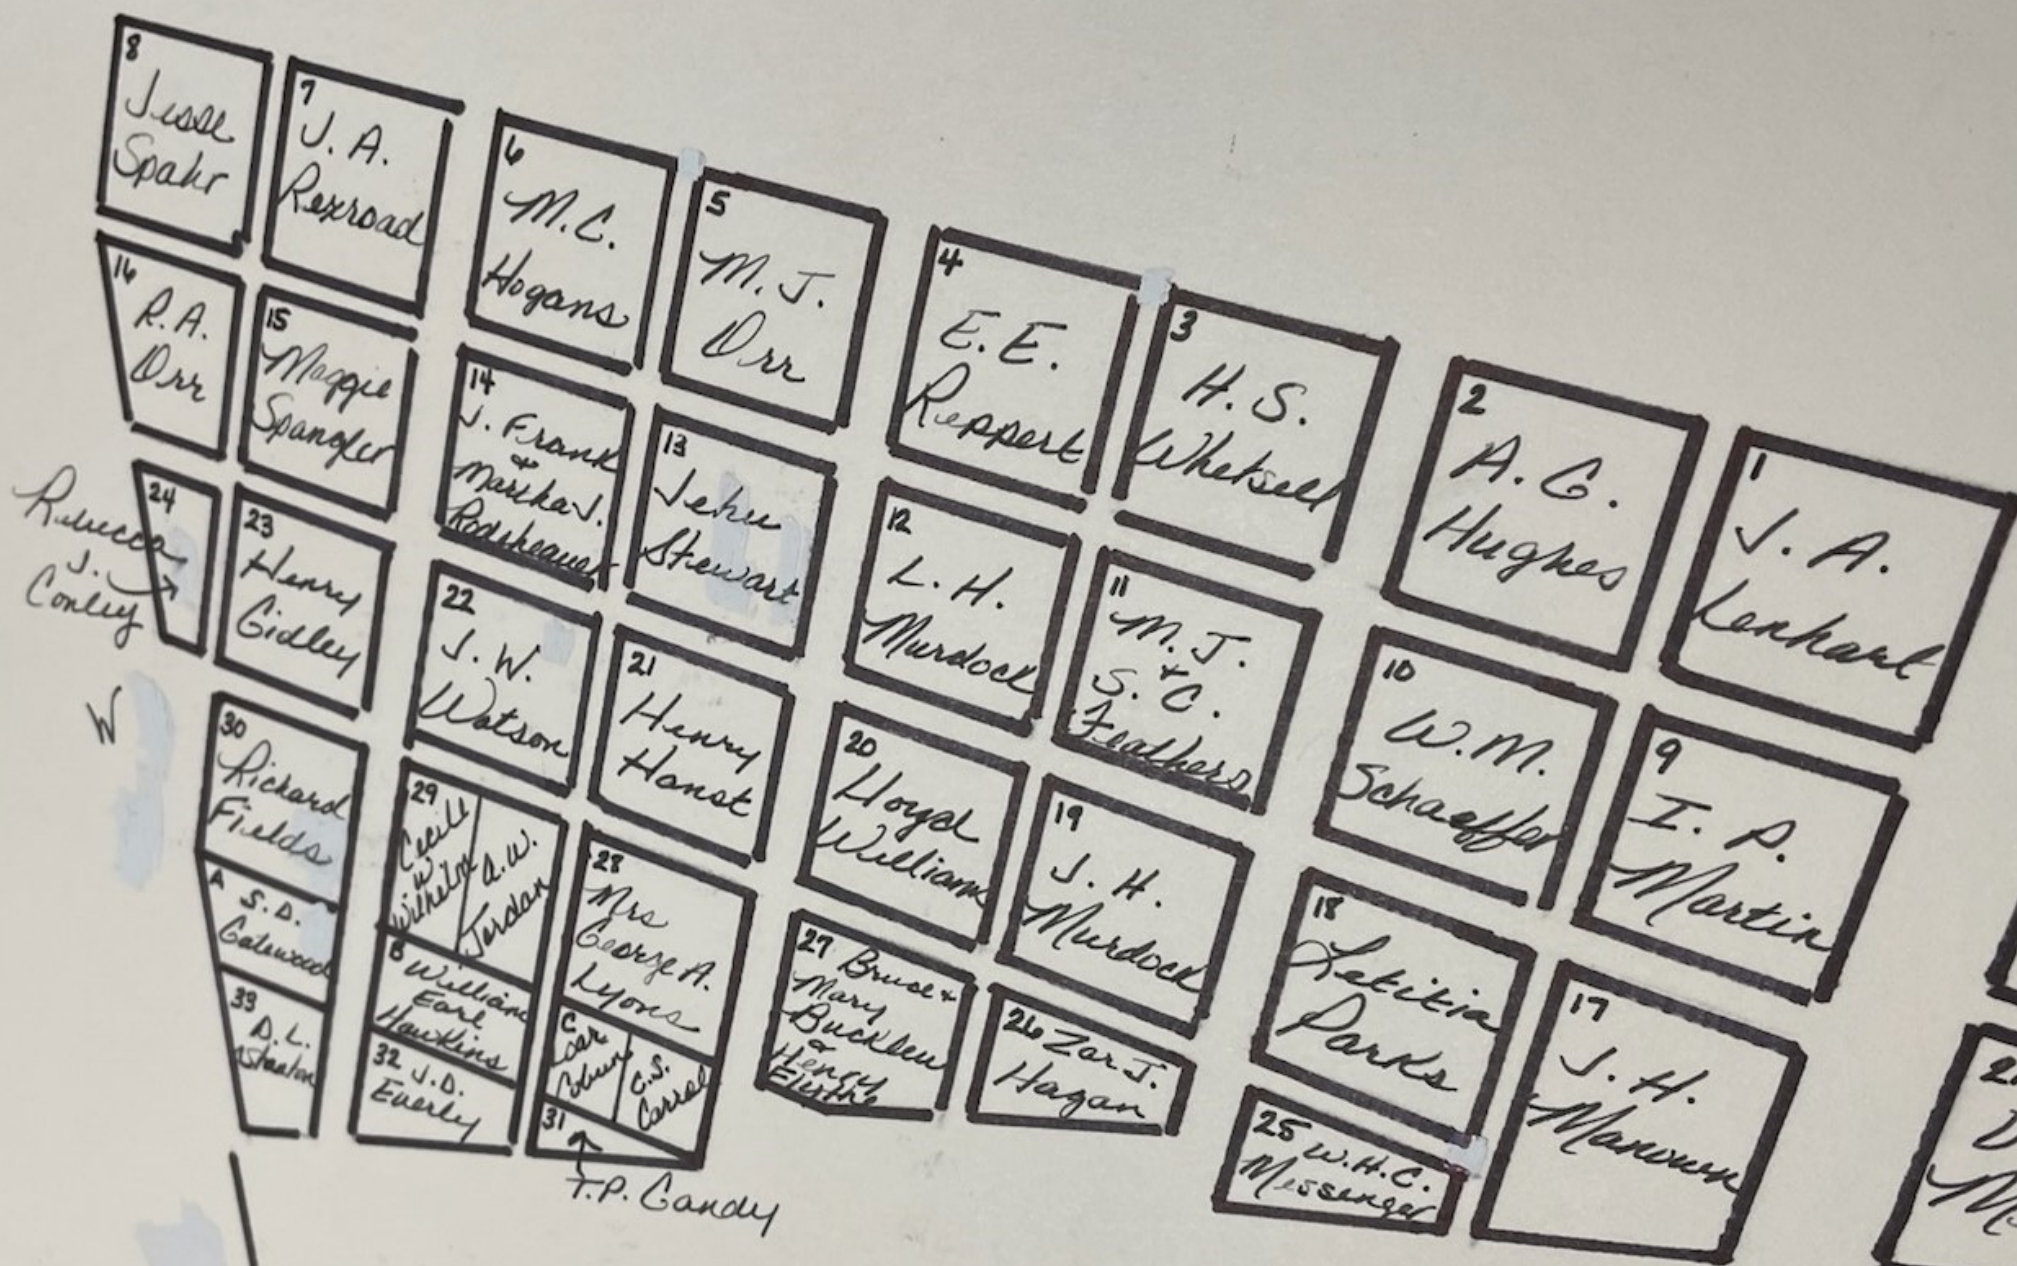 8
Jesse
Spahr
7
J. A.
Rexroad
6
M.C.
Hogans
5
M. J.
Orr
4
E. E.
Reppert
3
H. S.
Whetsell
2
A. G.
Hughes
1
J. A.
Lenhart
16
R.A.
Orr
15
Maggie
Spangler
14
J. Frank
&
Martha J.
Rodeheaver
13
Jehu
Stewart
12
L. H.
Murdock
11
M. J.
+
S. C.
Feathers
10
W. M.
Schaeffer
9
I. P.
Martin
24
Rebecca
J.
Conley
23
Henry
Gidley
22
J. W.
Watson
21
Henry
Hanst
20
Lloyd
Williams
19
J. H.
Murdock
18
Letitia
Parks
17
J. H.
Manown
W
30
Richard
Fields
29
Cecill
W
Wilhelm
A. W.
Jordan
28
Mrs
George A.
Lyons
27 Bruce &
Mary
Bucklew
&
Henry
26 Zar J.
Hagan
25 W. H. C.
Messenger
A
S. D.
Gatewood
B William
Earl
Hawkins
C
Coburn
C.S.
33
D. L.
Stanton
32 J. D.
Everly
31
T.P. Gandy
2
D
M